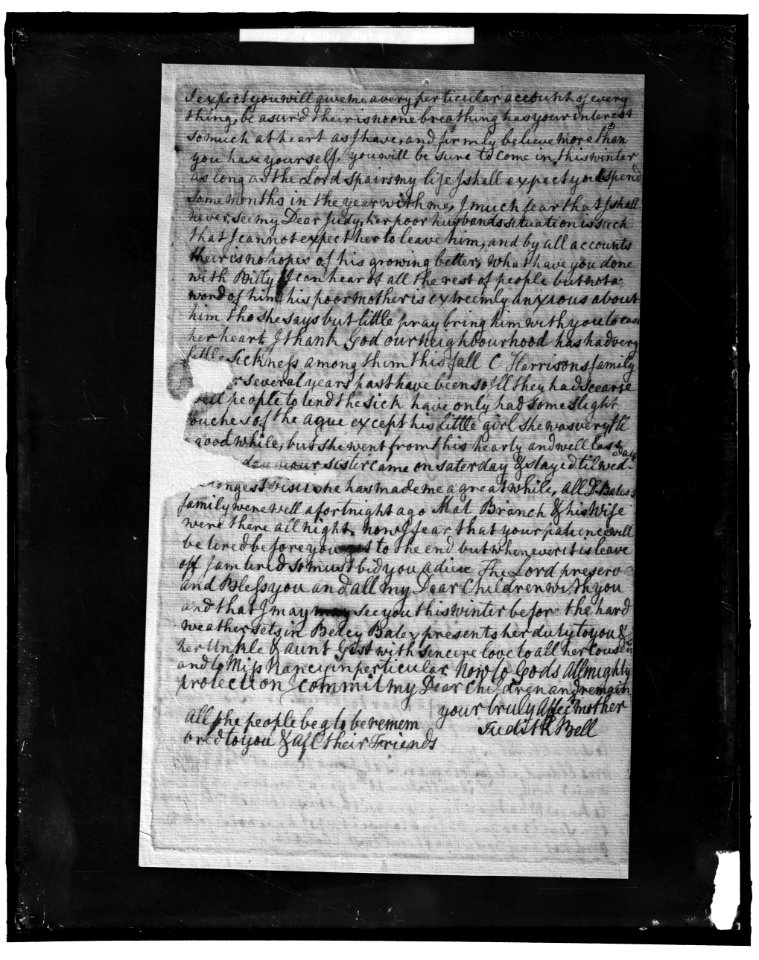 I expect you will give me a very perticular account of every
thing, be asurd their is no one breathing has your interest
so much at heart as I have, and firmly believe more than
you have yourself, you will be sure to come in this winter
as long as the Lord spairs my life I shall expect you'l spend
some months in the year with me, I much fear that I shall
never see my Dear Judy, her poor husbands situation is such
that I cannot expect her to leave him, and by all accounts
their is no hopes of his growing better, What have you done
with Billy I can hear of all the rest of people but not a
word of him, his poor mother is extreemly anxious about
him tho she says but little pray bring him with you to ease
her heart, I thank God our neighbourhood has had very
little sickness among them this fall C Harrisons family
several years past have been so Ill they had scearse
well people to tend the sick have only had some slight
touches of the ague except his little girl she was very Ill
good while, but she went from this hearly and well last
day your sister came on saterday & stayed til wed-
longest visit she has made me a great while, all J Bates's
family were well a fortnight ago Mat Branch & his Wife
were there all night, now I fear that your patience will
be tired before you get to the end but whenever it is leave
off I am tired so must bid you adieu The Lord preserv
and Bless you and all my Dear Children with you
and that I may see you this winter before the hard
weather sets in Betcy Bates presents her duty to you &
her Unkle & aunt Gist with sincire love to all her Cousens
and to Miss Nancy in perticular Now to Gods Allmighty
protection I commit my Dear Children and remain
your truly Affec mother
Judith Bell
All the people beg to be remem
bred to you & all their Friends